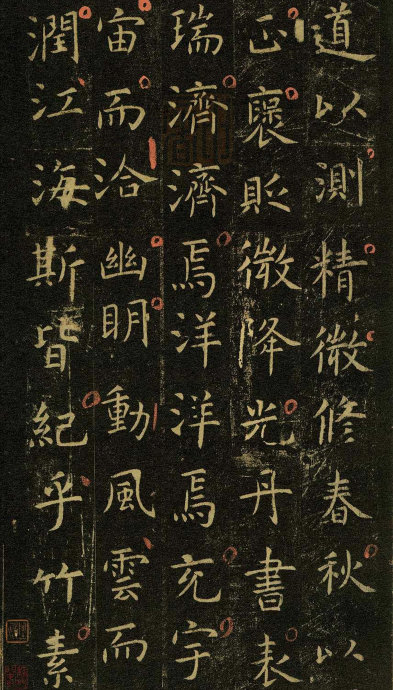 道以測精微修春秋以
正褒貶微降光丹書表
瑞濟濟焉洋洋焉充宇
宙而洽幽明動風雲而
潤江海斯皆紀乎竹素